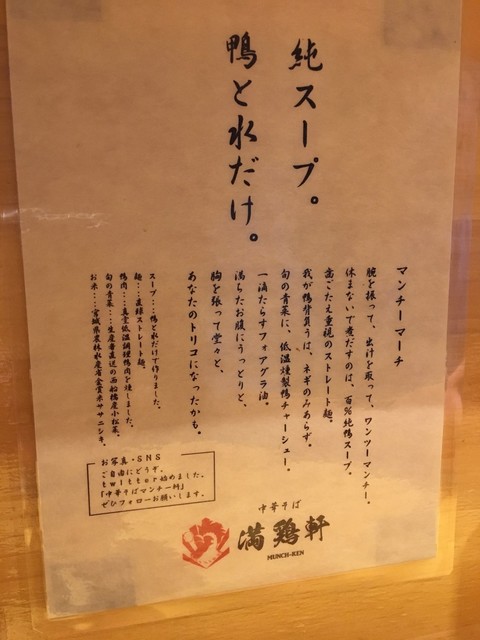 純スープ。
鴨と水だけ。
マンチーマーチ
腕を振って、出汁を取って、ワンツーマンチー。
休まないで煮だすのは、百％純鴨スープ。
歯ごたえ重視のストレート麺。
我が鴨背負うは、ネギのみあらず。
旬の青菜に、低温燻製鴨チャーシュー。
一滴たらすフォアグラ油。
満ちたお腹にうっとりと、
胸を張って堂々と、
あなたのトリコになったかも。
スープ…鴨と水だけで作りました。
麺…直球ストレート麺。
鴨肉…真空低温調理鴨肉を燻しました。
旬の青菜…生産者直送の西船橋産小松菜。
お米…宮城県農林水産省金賞米ササニシキ。
お写真・SNS
ご自由にどうぞ。
twitter始めました。
「中華そばマンチー軒」
ぜひフォローお願いします。
中華そば
満鶏軒
MUNCH-KEN